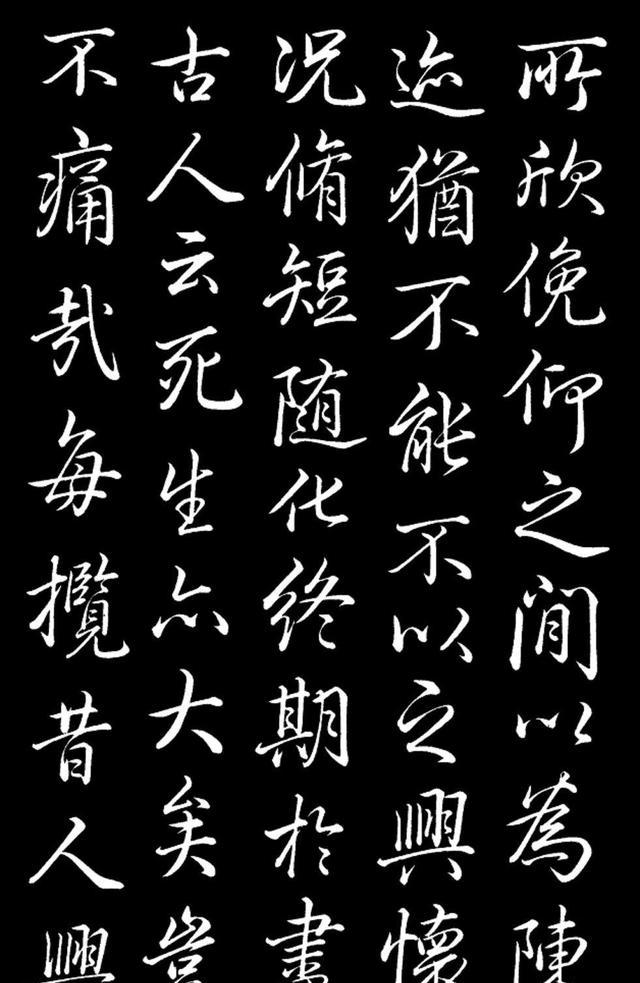 所欣俛仰之間以為陳
迹猶不能不以之興懷
況脩短随化終期於盡
古人云死生亦大矣豈
不痛哉每攬昔人興